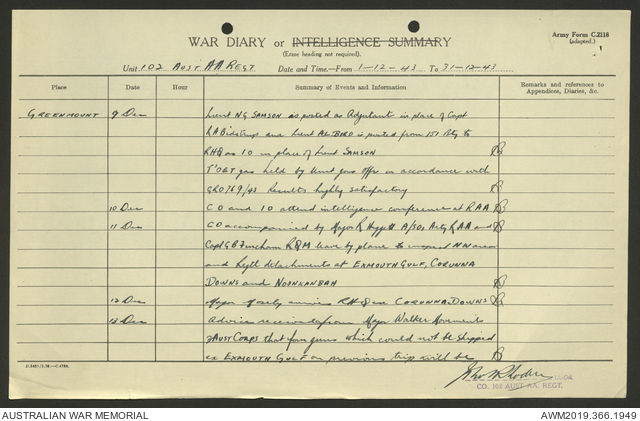 WAR DIARY or INTELLIGENCE SUMMARY
(Erase heading not required).
Army Form C.2118
(adapted.)
1
Unit 102 AUST AA REGT Date and Time.—From 1-12-43 To 31-12-43
Place Date Hour Summary of Events and Information Remarks and references to Appendices, Diaries, &c.
GREENMOUNT 9 Dec Lieut N G SAMSON is posted as Adjutant in place of Capt
and Lieut is posted from 151 Bty to
RHQ as IO in place of Lieut SAMSON
Test gas held by Unit gas offr in accordance with
GRO 769/43 Results highly satisfactory
10 Dec CO and IO attend intelligence conference at RAA
11 Dec CO accompanied by Major R A/SO, Arty RAA and
Capt G B RQM leave by plane to inspect NW area
and Light detachments at EXMOUTH GULF, CORUNNA
DOWNS and NOONKANBAH
12 Dec Major Mosely arrives RHQ ex CORUNNA DOWNS
13 Dec Advice received from Major Walker Movements
Aust Corps that four guns which could not be shipped
ex EXMOUTH GULF on previous trip will be
CO. 102 AUST. AA. REGT.
AUSTRALIAN WAR MEMORIAL AWM2019.366.1949